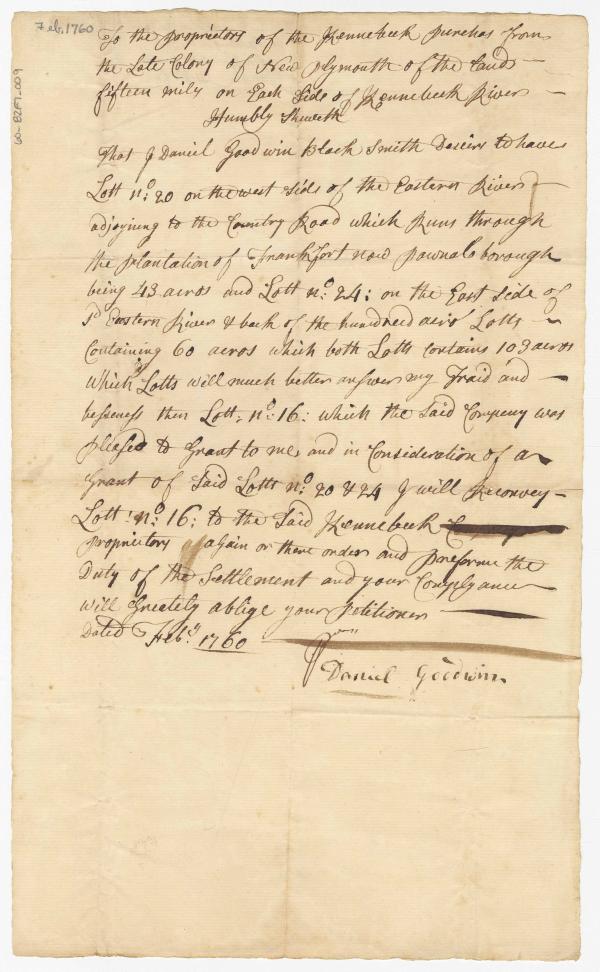 Feb. 1760
To the proprietors of the Kennebeck purchas from
the Late Colony of New plymouth of the Land
fifteen mily on Each Side of Kennebeck River
Humbly Sheweth
That I Daniel Goodwin Black Smith Desiers to have
Lott no: 20 on the west Side of the Eastern River
adjoyning to the Country Road which Runs through
the plantation of Frankfort now pownalsborough
being 43 acros and Lott no: 24: on the East Side of
sd Eastern River & back of the hundred acro Lotts
Containing 60 acros which both Lotts contains 103 acros
Which Lotts will much better answer my Traid and
besseness then Lott: no: 16: which the Said Company was
pleased to Grant to me and in Consideration of a
Grant of Said Lotts no: 20 & 24 I will Reconvey
Lott: no: 16: to the Said Kennebeck
proprietors again or there order and preforme the
Duty of the Settlement and your Complyance
will Greately ablige your Petitioner
Dated Feby 1760
Daniel Goodwin